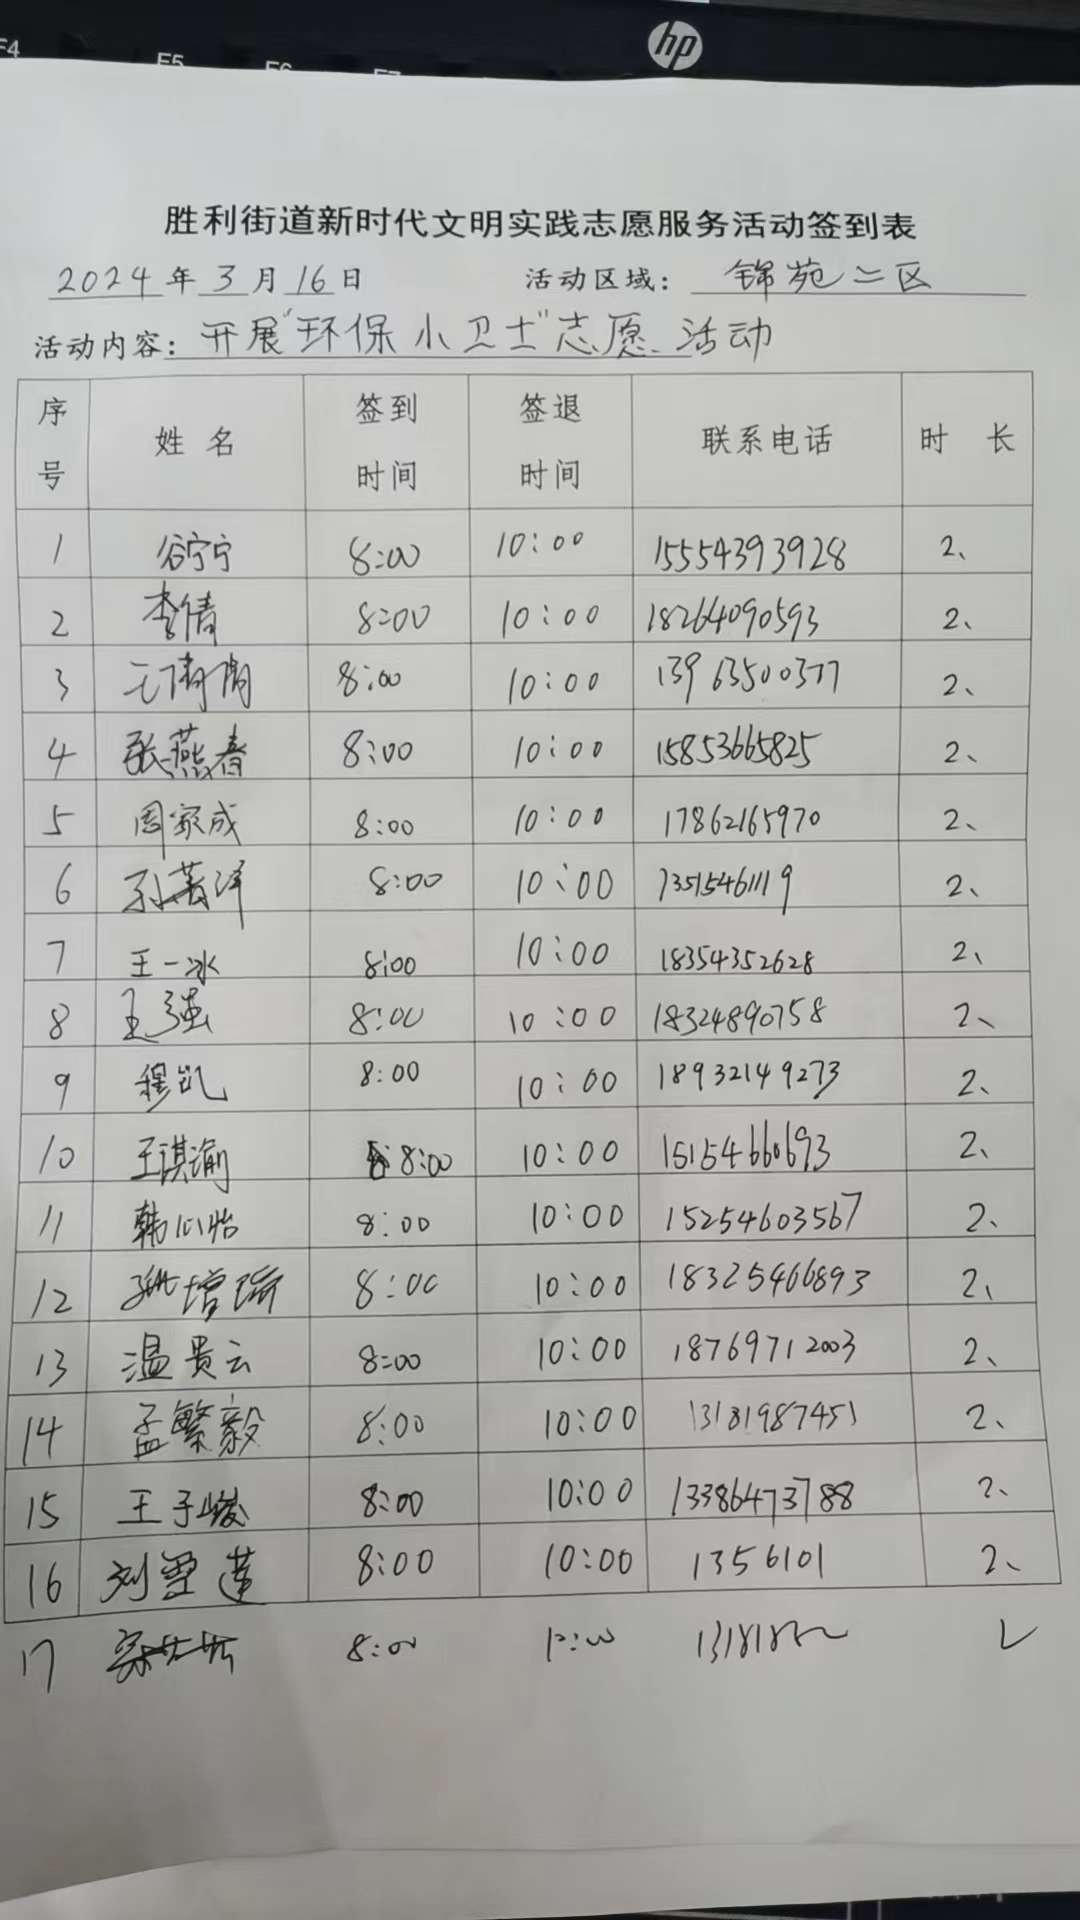 F4
F5
F6
F7
hp
胜利街道新时代文明实践志愿服务活动签到表
2024年3月16日 活动区域：锦苑二区
活动内容：开展“环保小卫士”志愿活动
序号 姓名 签到时间 签退时间 联系电话 时长
1 谷宁宁 8:00 10:00 15554393928 2、
2 李倩 8:00 10:00 18264090593 2、
3 8:00 10:00 13963500377 2、
4 张燕春 8:00 10:00 15853665825 2、
5 周家成 8:00 10:00 17862165970 2、
6 孙菁洋 8:00 10:00 13515461119 2、
7 王一冰 8:00 10:00 18354352628 2、
8 王强 8:00 10:00 18324890758 2、
9 穆凯 8:00 10:00 18932149273 2、
10 王淇渝 8:00 10:00 15154660693 2、
11 韩心怡 8:00 10:00 15254603567 2、
12 8:00 10:00 18325466893 2、
13 温贵云 8:00 10:00 18769712003 2、
14 孟繁毅 8:00 10:00 13181987451 2、
15 王子峻 8:00 10:00 13386473788 2、
16 刘雪莲 8:00 10:00 1356101 2、
17 8:00 10:00